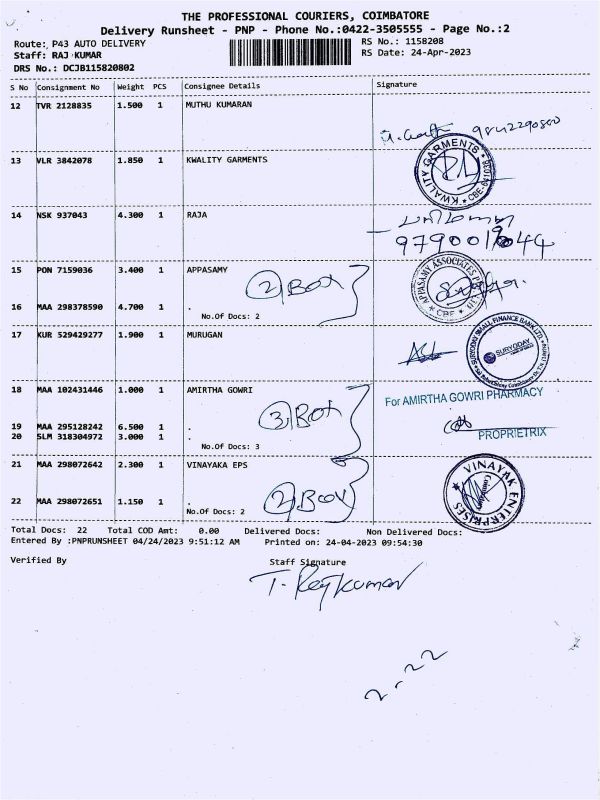 THE PROFESSIONAL COURIERS, COIMBATORE
Delivery Runsheet - PNP - Phone No.:0422-3505555 - Page No.:2
Route: P43 AUTO DELIVERY
RS No.: 1158208
Staff: RAJ KUMAR
RS Date: 24-Apr-2023
DRS No.: DCJB115820802
S No Consignment No Weight PCS Consignee Details Signature
12 TVR 2128835 1.500 1 MUTHU KUMARAN
9842290800
13 VLR 3842078 1.850 1 KWALITY GARMENTS
KWALITY GARMENTS * CBE-641038 *
14 NSK 937043 4.300 1 RAJA
15 PON 7159036 3.400 1 APPASAMY
2 Box
APPASAMY ASSOCIATES * CBE *
16 MAA 298378590 4.700 1 .
No.Of Docs: 2
17 KUR 529429277 1.900 1 MURUGAN
SURYODAY SMALL FINANCE BANK LTD.
SURYODAY
18 MAA 102431446 1.000 1 AMIRTHA GOWRI
For AMIRTHA GOWRI PHARMACY
3 Box
19 MAA 295128242 6.500 1 .
20 SLM 318304972 3.000 1 .
PROPRIETRIX
No.Of Docs: 3
21 MAA 298072642 2.300 1 VINAYAKA EPS
2 Box
VINAYAK ENTERPRISES
Coimbatore
22 MAA 298072651 1.150 1 .
No.Of Docs: 2
Total Docs: 22 Total COD Amt: 0.00 Delivered Docs: Non Delivered Docs:
Entered By :PNPRUNSHEET 04/24/2023 9:51:12 AM Printed on: 24-04-2023 09:54:30
Verified By Staff Signature
T. Rajkumar
2-22